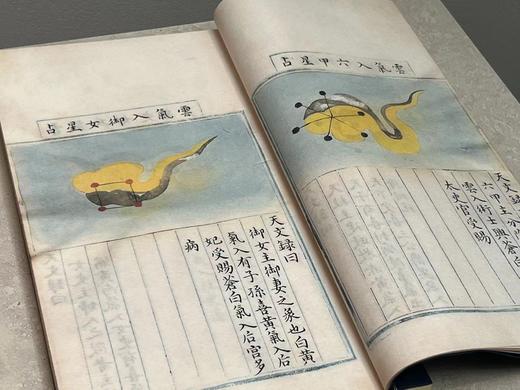 雲氣入六甲星占
天文錄曰
六甲主分
雲入術士興蒼白
太史官受賜
雲氣入御女星占
天文錄曰
御女主御妻之象也白黃
氣入有子孫喜黃氣入后
妃受賜蒼白氣入后宮多
病